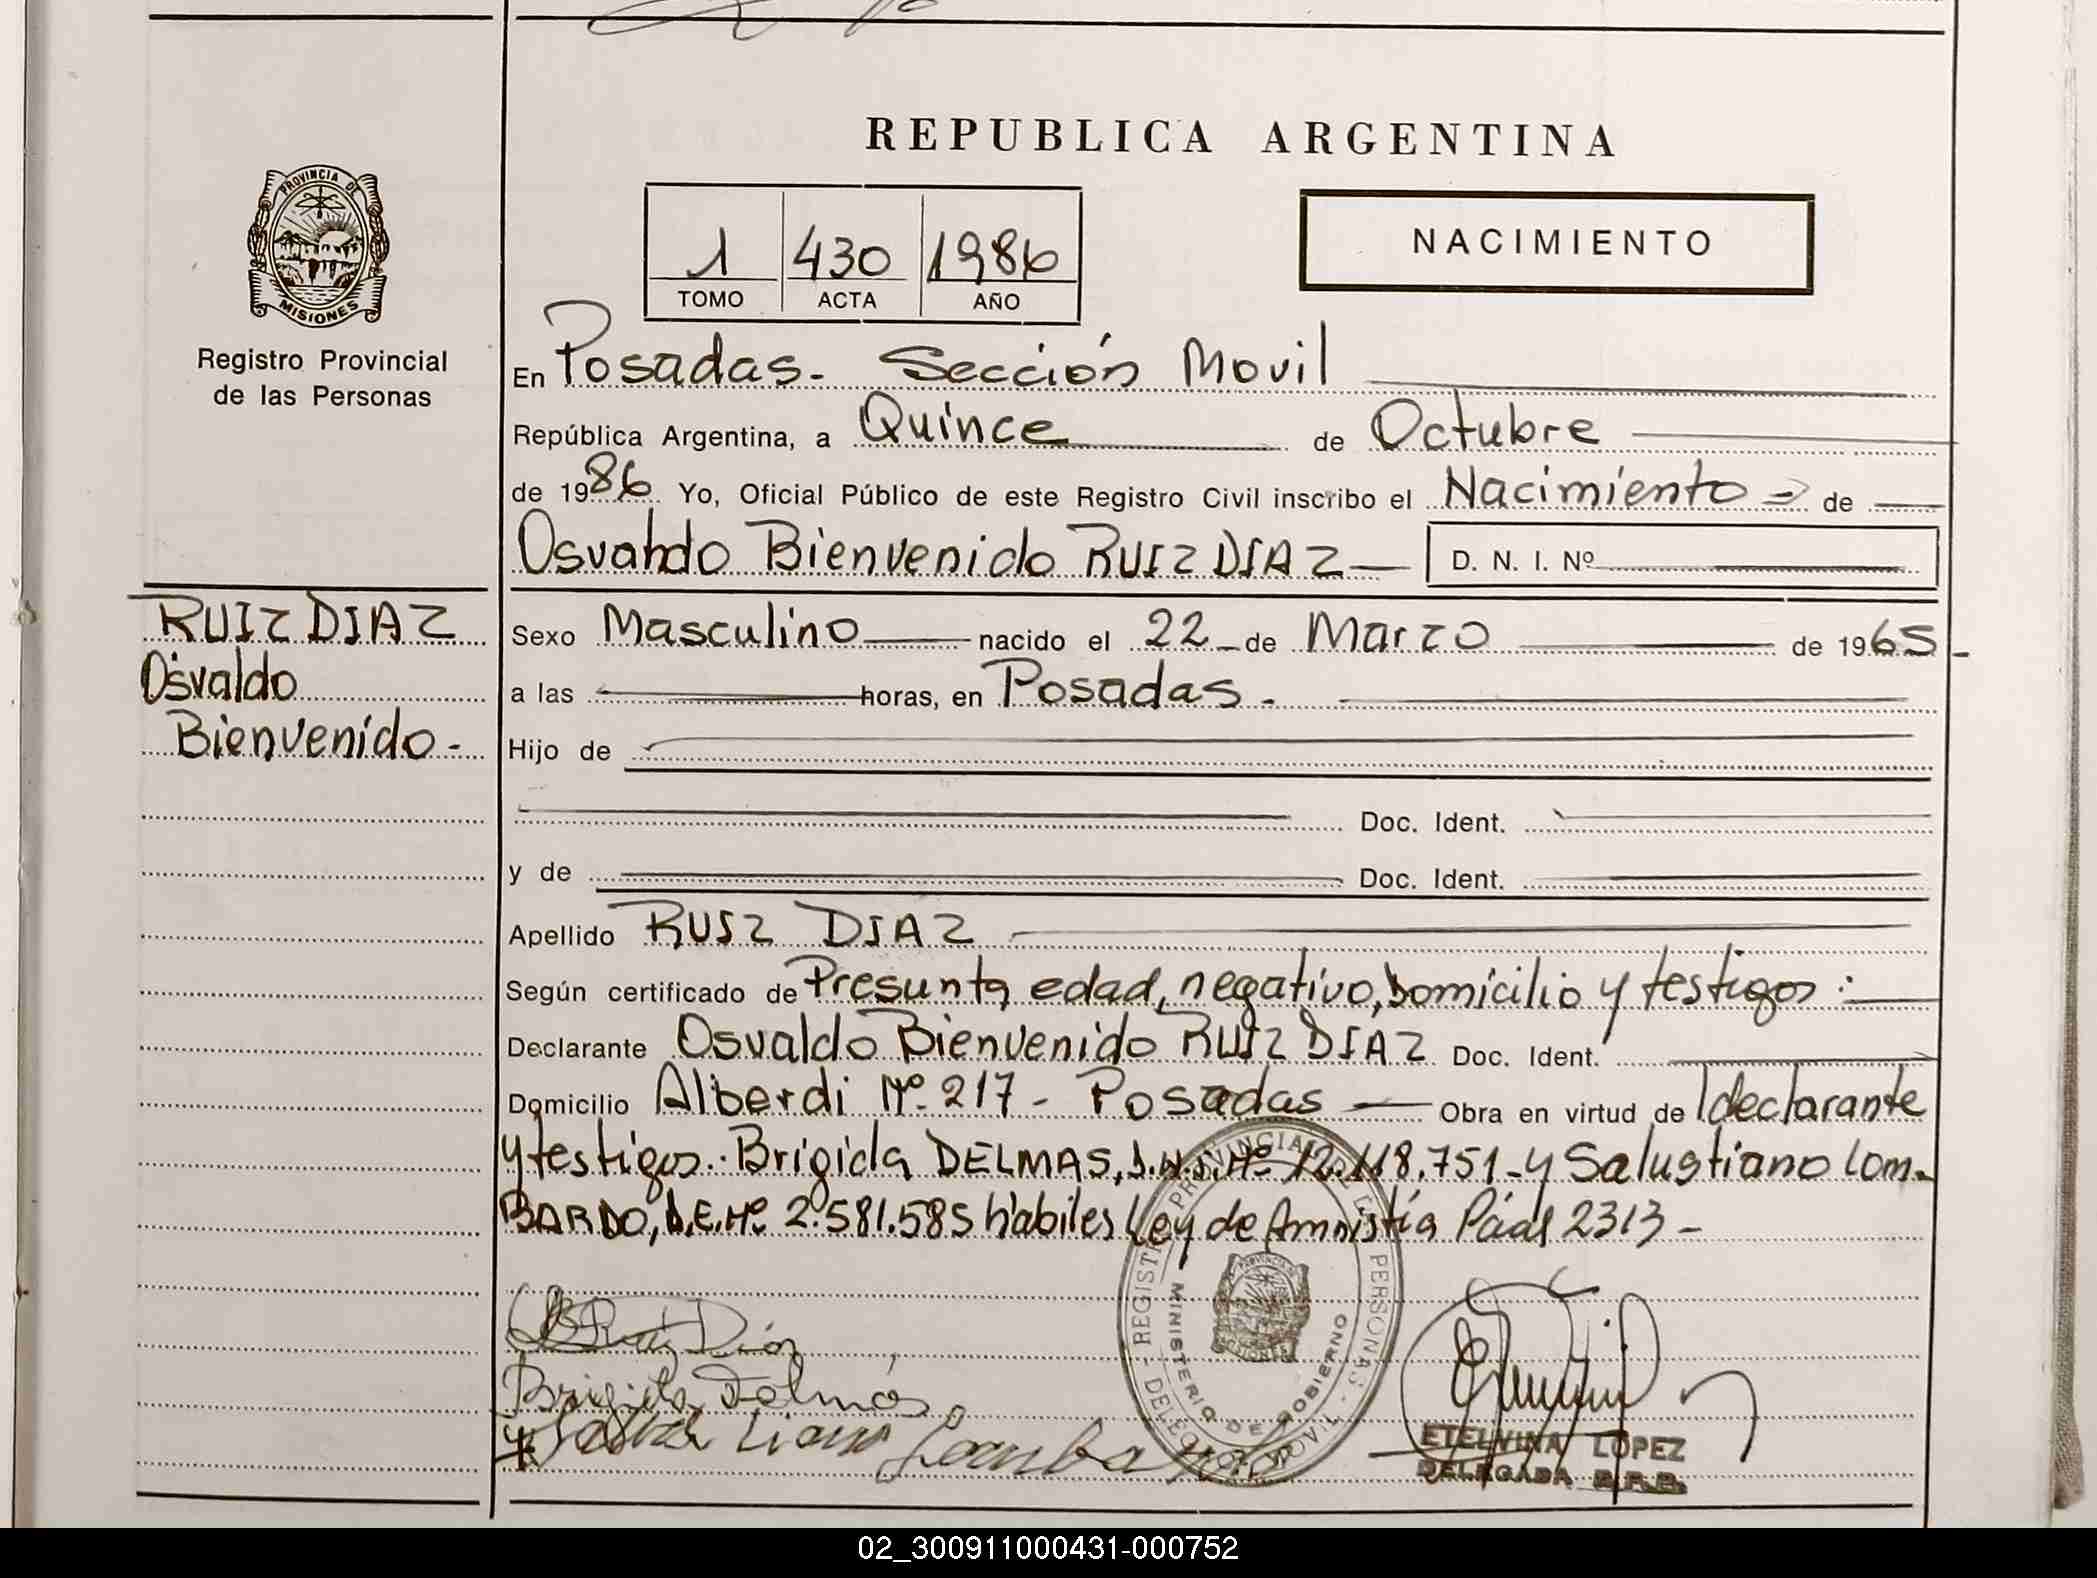 REPUBLICA ARGENTINA
PROVINCIA DE
MISIONES
Registro Provincial
de las Personas
1 430 1986
TOMO ACTA AÑO
NACIMIENTO
En Posadas - Sección Movil
República Argentina, a Quince de Octubre
de 1986 Yo, Oficial Público de este Registro Civil inscribo el Nacimiento de
Osvaldo Bienvenido RUIZ DIAZ D. N. I. Nº
RUIZ DIAZ
Osvaldo
Bienvenido -
Sexo Masculino nacido el 22 de Marzo de 1965 -
a las horas, en Posadas -
Hijo de
Doc. Ident.
y de Doc. Ident.
Apellido RUIZ DIAZ
Según certificado de Presunta edad, negativo, Domicilio y testigos :
Declarante Osvaldo Bienvenido RUIZ DIAZ Doc. Ident.
Domicilio Alberdi Nº 217 - Posadas Obra en virtud de declarante
y testigos.. Brigida DELMAS, D.N.I. Nº 12.118.751 - y Salustiano Lom-
BARDO, D.E. Nº 2.581.585 hábiles Ley de Amnistía Pcial 2313 -
Ruiz Diaz
Brigida Delmás
REGISTRO PROVINCIAL DE PERSONAS
MINISTERIO DE GOBIERNO
ETELVINA LOPEZ
DELEGADA
02_300911000431-000752